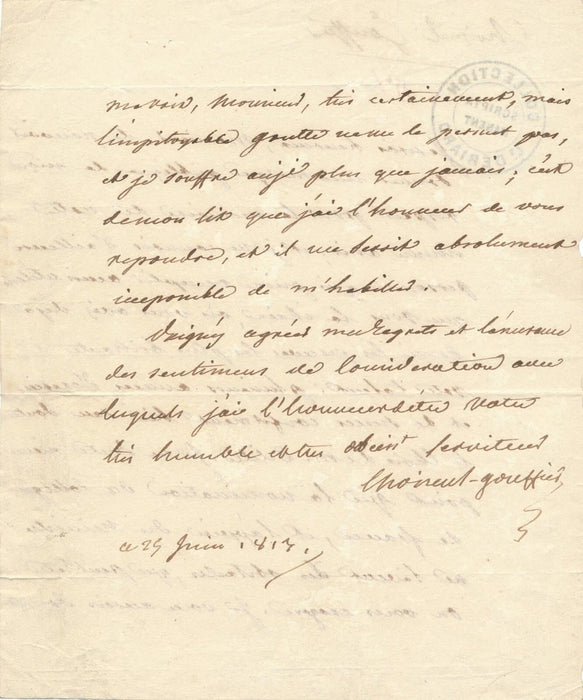 me voir, Monsieur, très certainement, mais
l'impitoyable goutte ne me le permet pas,
et je souffre aujd plus que jamais; c'est
de mon lit que j'ai l'honneur de vous
repondre, et il me seroit absolument
impossible de m'habiller.
Daignés agréer mes regrets et l'
des sentimens de consideration avec
lesquels j'ai l'honneur detre votre
très humble et très obeisst serviteur
Choiseul-gouffier
ce 25 Juin 1817.